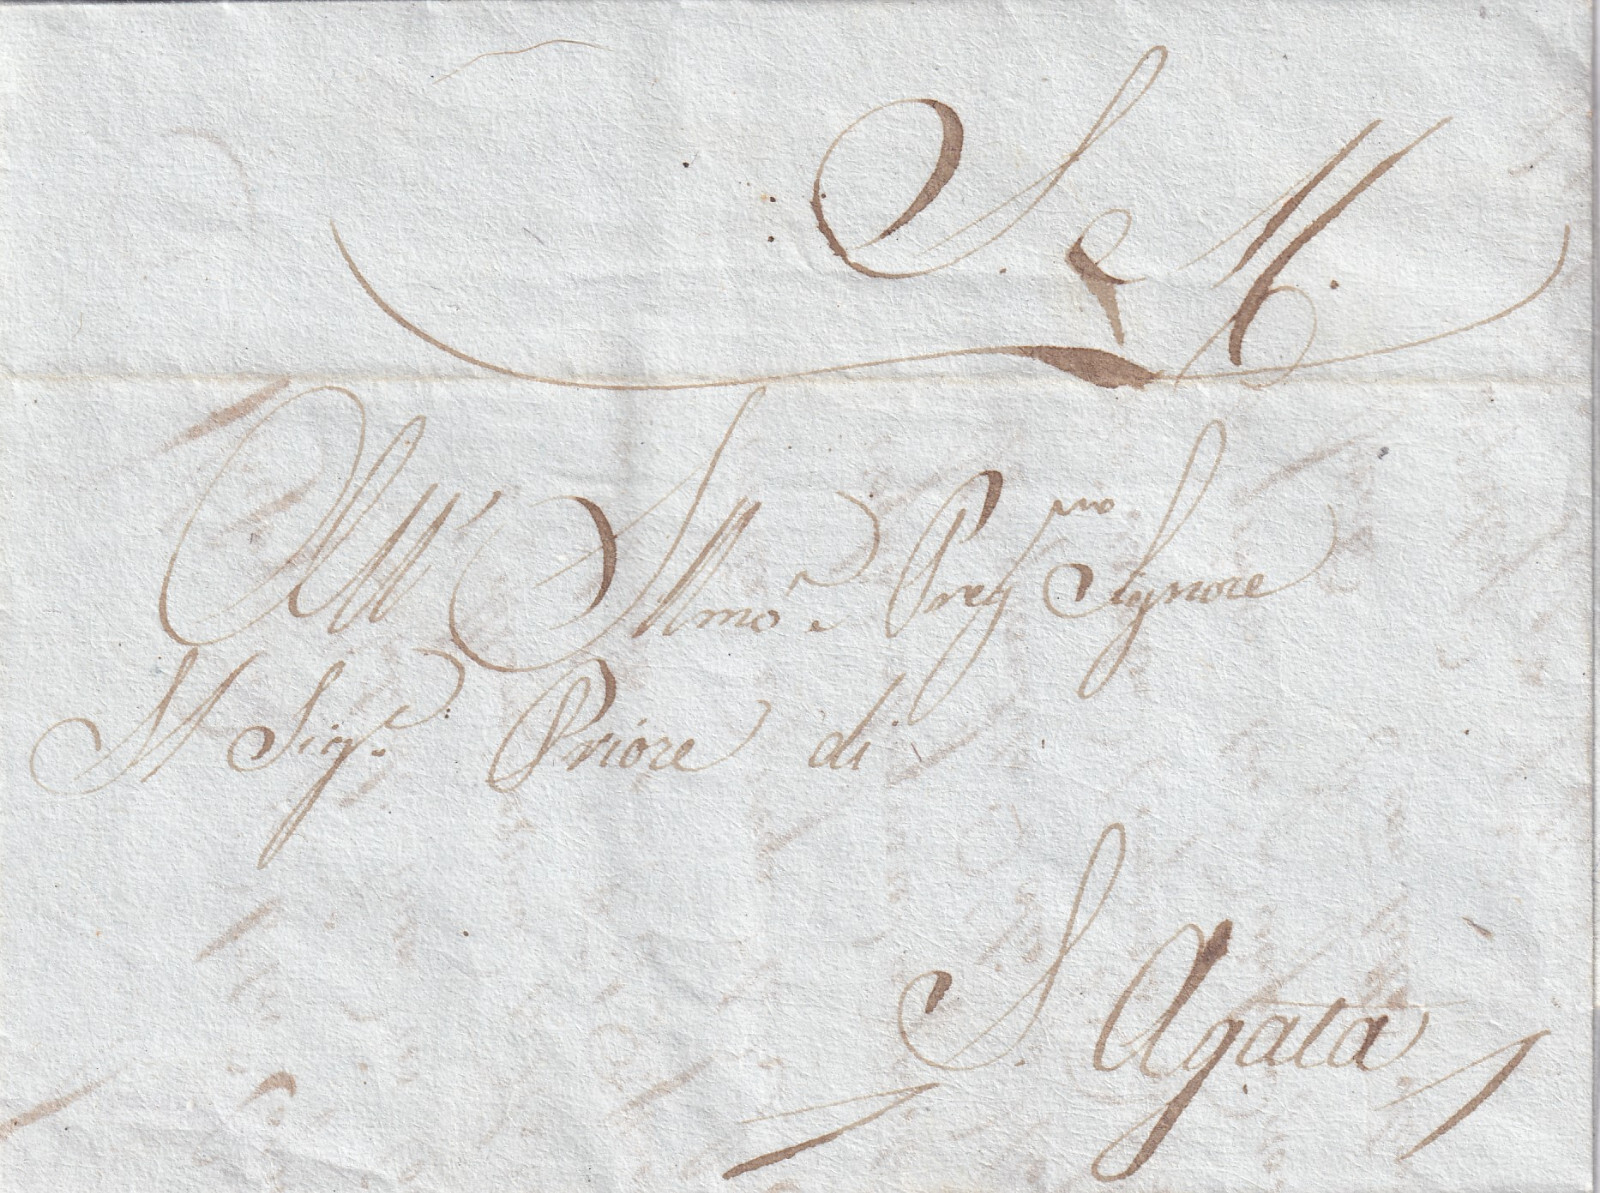 S. M.
All' Illmo e Preg.mo Signore
Il Sig.e Priore di
S. Agata